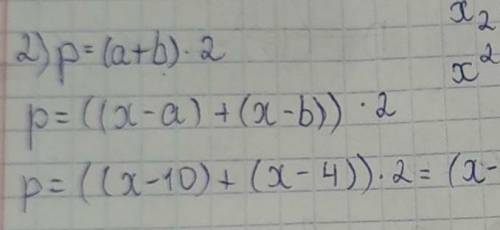 x₂
2) p=(a+b)·2
x²
p=((x-a)+(x-b))·2
p=((x-10)+(x-4))·2=(x-